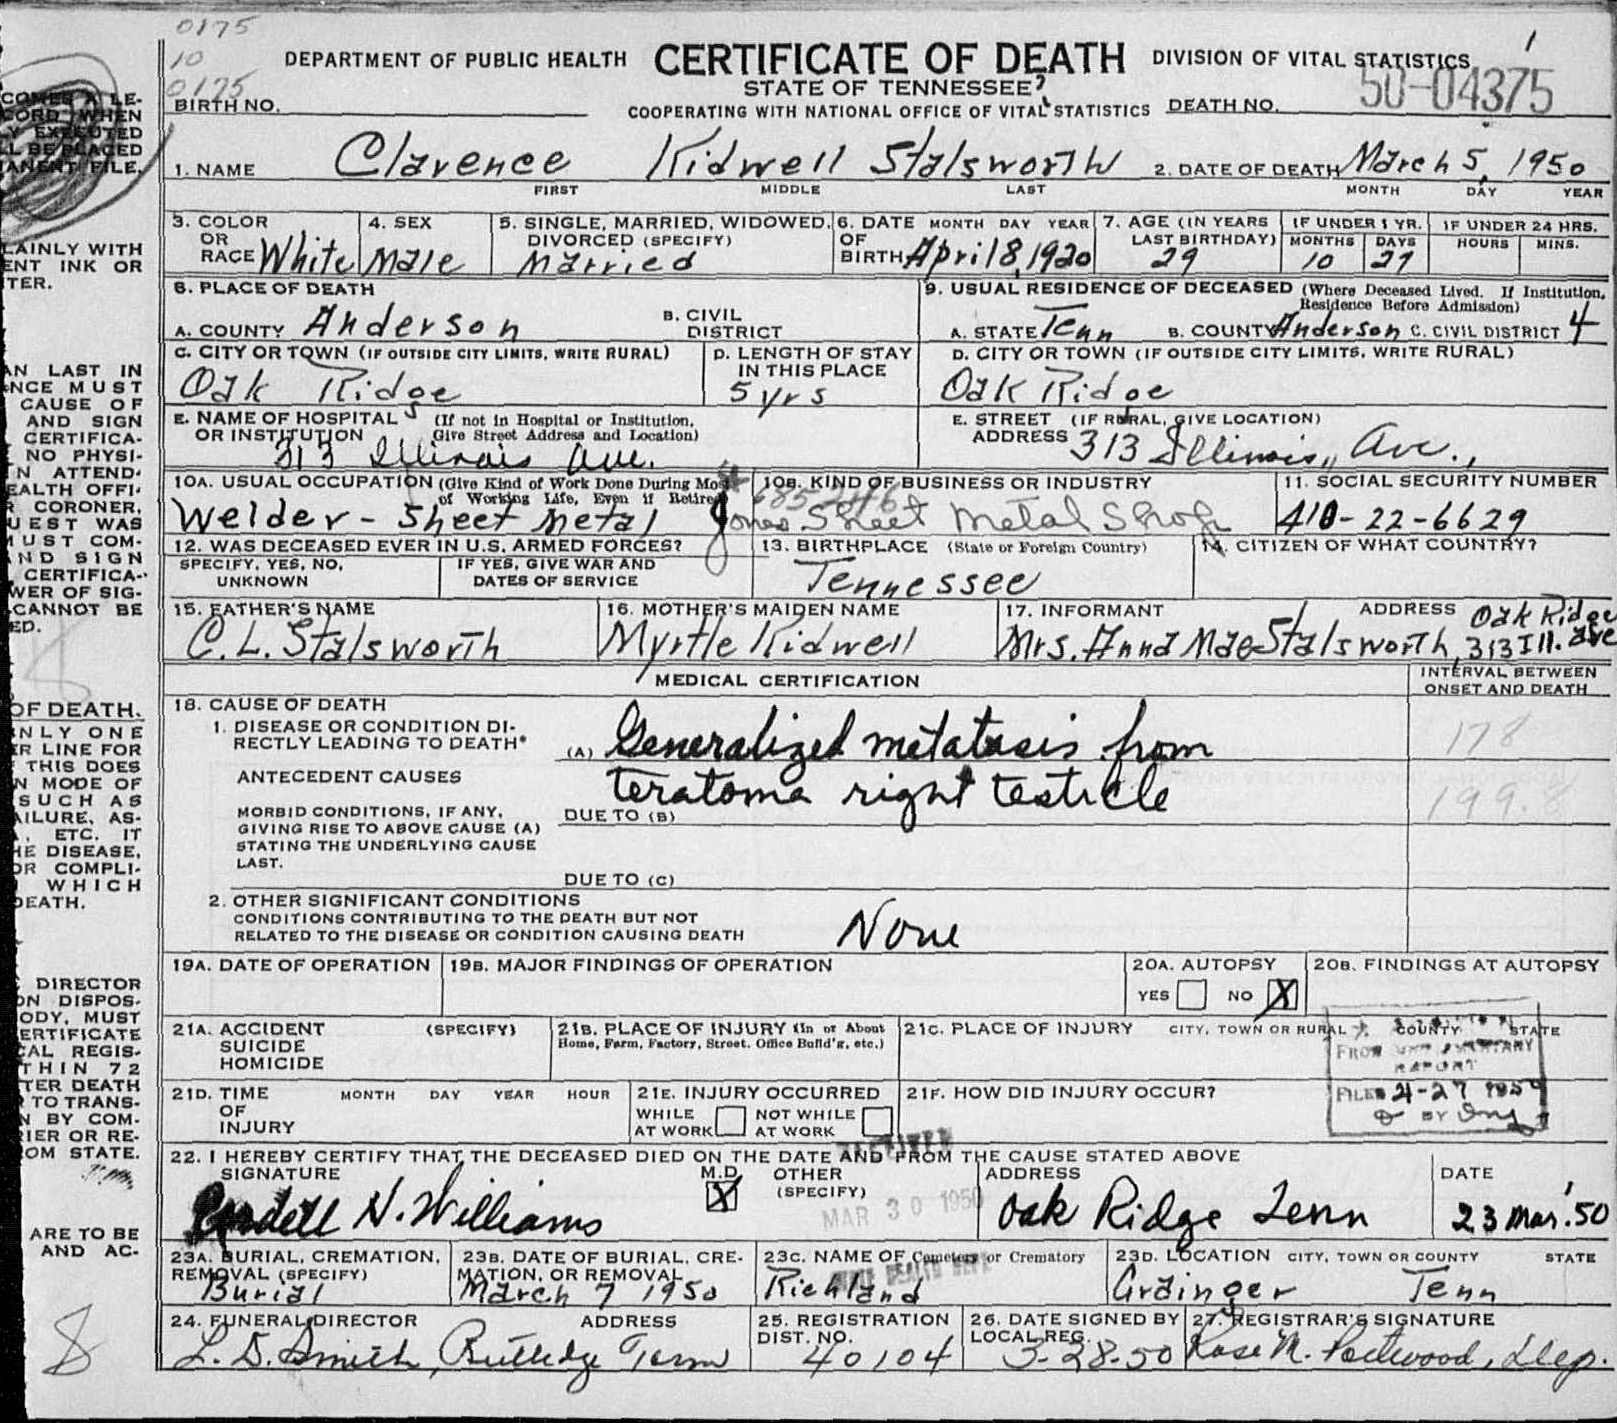 0175
10
0175
1
DEPARTMENT OF PUBLIC HEALTH CERTIFICATE OF DEATH DIVISION OF VITAL STATISTICS
STATE OF TENNESSEE
50-04375
BIRTH NO. COOPERATING WITH NATIONAL OFFICE OF VITAL STATISTICS DEATH NO.
1. NAME Clarence Kidwell Stalsworth 2. DATE OF DEATH March 5, 1950
FIRST MIDDLE LAST MONTH DAY YEAR
3. COLOR OR RACE White
4. SEX Male
5. SINGLE, MARRIED, WIDOWED, DIVORCED (SPECIFY) Married
6. DATE OF BIRTH MONTH DAY YEAR April 8, 1920
7. AGE (IN YEARS LAST BIRTHDAY) 29
IF UNDER 1 YR. MONTHS 10 DAYS 27
IF UNDER 24 HRS. HOURS MINS.
8. PLACE OF DEATH
A. COUNTY Anderson B. CIVIL DISTRICT
9. USUAL RESIDENCE OF DECEASED (Where Deceased Lived. If Institution, Residence Before Admission)
A. STATE Tenn B. COUNTY Anderson C. CIVIL DISTRICT 4
C. CITY OR TOWN (IF OUTSIDE CITY LIMITS, WRITE RURAL) Oak Ridge
D. LENGTH OF STAY IN THIS PLACE 5 yrs
D. CITY OR TOWN (IF OUTSIDE CITY LIMITS, WRITE RURAL) Oak Ridge
E. NAME OF HOSPITAL OR INSTITUTION (If not in Hospital or Institution, Give Street Address and Location) 313 Illinois Ave.
E. STREET ADDRESS (IF RURAL, GIVE LOCATION) 313 Illinois, Ave.,
10A. USUAL OCCUPATION (Give Kind of Work Done During Most of Working Life, Even if Retired) Welder - Sheet Metal
10B. KIND OF BUSINESS OR INDUSTRY Jones Sheet Metal Shop
11. SOCIAL SECURITY NUMBER 410-22-6629
12. WAS DECEASED EVER IN U.S. ARMED FORCES?
SPECIFY, YES, NO, UNKNOWN
IF YES, GIVE WAR AND DATES OF SERVICE
13. BIRTHPLACE (State or Foreign Country) Tennessee
14. CITIZEN OF WHAT COUNTRY?
15. FATHER'S NAME C. L. Stalsworth
16. MOTHER'S MAIDEN NAME Myrtle Kidwell
17. INFORMANT ADDRESS Mrs. Anna Mae Stalsworth, Oak Ridge 313 Ill. ave
MEDICAL CERTIFICATION
INTERVAL BETWEEN ONSET AND DEATH
18. CAUSE OF DEATH
1. DISEASE OR CONDITION DIRECTLY LEADING TO DEATH* (A) Generalized metatasis from
ANTECEDENT CAUSES teratoma right testicle
178
199.8
MORBID CONDITIONS, IF ANY, GIVING RISE TO ABOVE CAUSE (A) STATING THE UNDERLYING CAUSE LAST.
DUE TO (B)
DUE TO (C)
2. OTHER SIGNIFICANT CONDITIONS
CONDITIONS CONTRIBUTING TO THE DEATH BUT NOT RELATED TO THE DISEASE OR CONDITION CAUSING DEATH None
19A. DATE OF OPERATION
19B. MAJOR FINDINGS OF OPERATION
20A. AUTOPSY YES NO X
20B. FINDINGS AT AUTOPSY
21A. ACCIDENT SUICIDE HOMICIDE (SPECIFY)
21B. PLACE OF INJURY (In or About Home, Farm, Factory, Street, Office Build'g, etc.)
21C. PLACE OF INJURY CITY, TOWN OR RURAL COUNTY STATE
21D. TIME OF INJURY MONTH DAY YEAR HOUR
21E. INJURY OCCURRED WHILE AT WORK NOT WHILE AT WORK
21F. HOW DID INJURY OCCUR?
FROM
REPORT
FILED 4-27 1950
BY
22. I HEREBY CERTIFY THAT THE DECEASED DIED ON THE DATE AND FROM THE CAUSE STATED ABOVE
RECEIVED
MAR 30 1950
SIGNATURE N. Williams
M.D. X OTHER (SPECIFY)
ADDRESS Oak Ridge Tenn
DATE 23 Mar. '50
23A. BURIAL, CREMATION, REMOVAL (SPECIFY) Burial
23B. DATE OF BURIAL, CREMATION, OR REMOVAL March 7 1950
23C. NAME OF Cemetery or Crematory Richland
23D. LOCATION CITY, TOWN OR COUNTY STATE Grainger Tenn
24. FUNERAL DIRECTOR ADDRESS L. D. Smith, Rutledge Tenn
25. REGISTRATION DIST. NO. 40104
26. DATE SIGNED BY LOCAL REG. 3-28-50
27. REGISTRAR'S SIGNATURE Rose M. Dep.
LAINLY WITH
ENT INK OR
TER.
AN LAST IN
NCE MUST
CAUSE OF
AND SIGN
CERTIFICA-
NO PHYSI-
N ATTEND-
EALTH OFFI-
R CORONER,
UEST WAS
MUST COM-
AND SIGN
CERTIFICA-
WER OF SIG-
CANNOT BE
ED.
8
OF DEATH.
ONLY ONE
ER LINE FOR
THIS DOES
N MODE OF
SUCH AS
AILURE, AS-
, ETC. IT
HE DISEASE,
OR COMPLI-
WHICH
DEATH.
DIRECTOR
ON DISPOS-
ODY, MUST
ERTIFICATE
CAL REGIS-
THIN 72
TER DEATH
TO TRANS-
N BY COM-
RIER OR RE-
OM STATE.
ARE TO BE
AND AC-
8